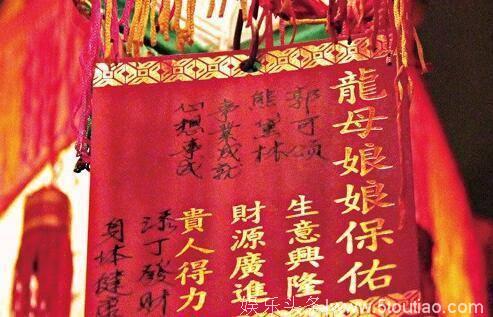 龍母娘娘保佑
郭可頌
熊黛林
事業成就
心想事成
生意興隆
財源廣進
貴人得力
添丁發財
身体健康
娱乐头条 www.5toutiao.com